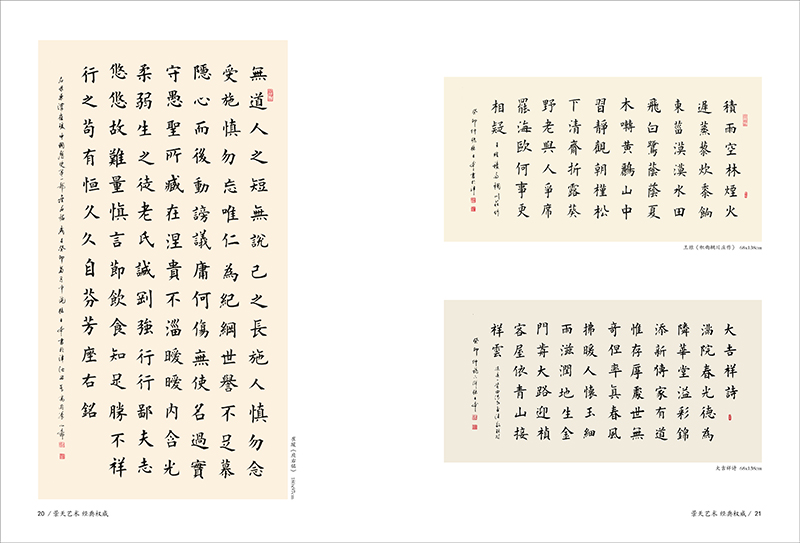 無道人之短無說己之長施人慎勿念
受施慎勿忘唯仁為紀綱世譽不足慕
隱心而後動謗議庸何傷無使名過實
守愚聖所臧在涅貴不淄曖曖內含光
柔弱生之徒老氏誡剛強行行鄙夫志
悠悠故難量慎言節飲食知足勝不祥
行之苟有恒久久自芬芳座右銘
崔瑗《座右铭》 180x97cm
20 / 景天艺术 经典权威
積雨空林煙火
遲蒸藜炊黍餉
東菑漠漠水田
飛白鷺蔭蔭夏
木囀黃鸝山中
習靜觀朝槿松
下清齋折露葵
野老與人爭席
罷海鷗何事更
相疑
王維《积雨辋川庄作》 68x138cm
大吉祥詩
滿院春光德為
隣華堂溢彩錦
添新傳家有道
惟存厚處世無
奇但率真春風
拂暖人懷玉細
雨滋潤地生金
門前大路迎楨
客屋依青山接
祥雲
大吉祥诗 68x138cm
景天艺术 经典权威 / 21